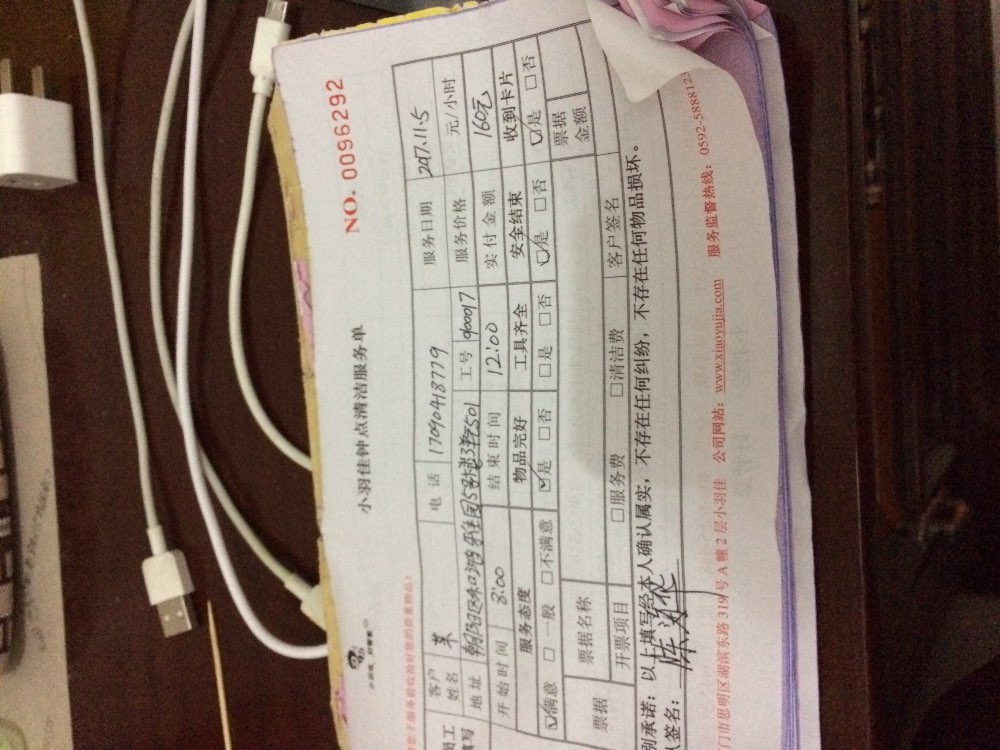 NO. 0096292
小羽佳钟点清洁服务单
客户姓名 电话 17090418779 服务日期 2017.11.5
地址 朝阳区 58 501 工号 900017 服务价格 元/小时
开始时间 8:00 结束时间 12:00 实付金额 160元
服务态度 物品完好 工具齐全 安全结束 收到卡片
☑满意 □一般 □不满意 ☑是 □否 □是 □否 ☑是 □否 ☑是 □否
票据 票据名称 票据金额
开票项目 □服务费 □清洁费 客户签名
别承诺：以上填写经本人确认属实，不存在任何纠纷，不存在任何物品损坏。
人签名：
门市思明区湖滨东路319号A幢2层小羽佳 公司网站：www.xiaoyujia.com 服务监督热线：0592-5888123